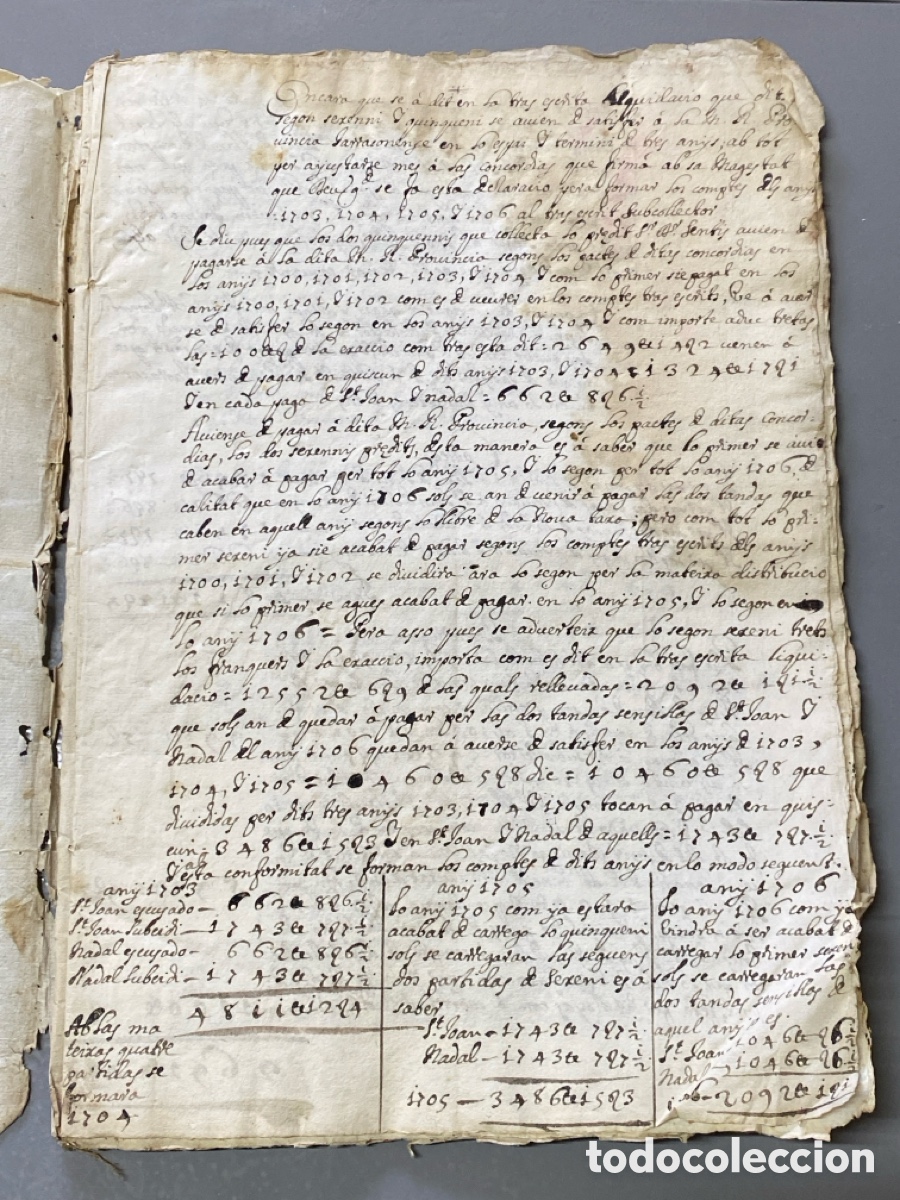 Encara que se á dit en la tras escrita liquidacio que dit
segon sexenni y quinqueni se avien de satisfer á la M. R. Pro
vincia Tarraconense en lo espai y termini de tres anijs; ab tot
per ajustarse mes á las concordias que firmá ab sa Magestat
que Deu g.d se fa esta declaracio pera formar los comptes dels anijs
1703, 1704, 1705, y 1706 al tras escrit subcollector
Se diu pues que los dos quinquennis que collecta lo predit avien de
pagarse á la dita M. R. Provincia segons los pactes de ditas concordias en
los anijs 1700, 1701, 1702, 1703, y 1704 y com lo primer sie pagat en los
anijs 1700, 1701, y 1702 com es de veurer en los comptes tras escrits, ve á aver
se de satisfer lo segon en los anijs 1703, y 1704 y com importe aduc tretas
las de la exaccio com tras esta dit = 2649 1492 venen á
avers de pagar en quiscun de dits anijs 1703, y 1704 1324 1791
y en cada paga de St. Joan y Nadal = 662 896 1/2
Aviense de pagar á dita M. R. Provincia, segons los pactes de ditas concor-
dias, los dos sexennis predits, desta manera es á saber que lo primer se avie
de acabar á pagar per tot lo anij 1705, y lo segon per tot lo anij 1706, de
calitat que en lo anij 1706 sols se an de venir á pagar las dos tandas que
caben en aquell anij segons lo llibre de la Nova taxa; pero com tot lo pri-
mer sexeni ya sie acabat de pagar segons los comptes tras escrits dels anijs
1700, 1701, y 1702 se dividira ara lo segon per la mateixa distribucio
que si lo primer se agues acabat de pagar en lo anij 1705, y lo segon en
lo anij 1706 = Pera asso pues se adverteix que lo segon sexeni trets
los franquers y la exaccio, importa com es dit en la tras escrita liqui-
dacio = 12552 689 de las quals rellevadas = 2092 191 1/2
que sols an de quedar á pagar per las dos tandas sensillas de St. Joan y
Nadal del anij 1706 quedan á averse de satisfer en los anijs de 1703,
1704, y 1705 = 10460 598 dic = 10460 598 que
divididas per dits tres anijs 1703, 1704 y 1705 tocan á pagar en quis-
cun = 3486 1593 y en St. Joan y Nadal de aquells = 1743 797 1/2
y esta conformitat se forman los comptes de dits anijs en lo modo seguent.
anij 1703
St. Joan escusado — 662 896 1/2
St. Joan subcidi — 1743 797 1/2
Nadal escusado — 662 896 1/2
Nadal subcidi — 1743 797 1/2
4811 1294
Ab las ma
teixas quatre
partidas se
formara
1704
anij 1705
Lo anij 1705 com ya estara
acabat de carrega lo quinqueni
sols se carregaran las seguens
dos partidas de sexeni es á
saber
St. Joan — 1743 797 1/2
Nadal — 1743 797 1/2
1705 — 3486 1593
anij 1706
Lo anij 1706 com ya
vindra á ser acabat de
carregar lo primer sexen
sols se carregaran las
dos tandas sensillas de
aquel anij es
St. Joan 1046 96 1/2
Nadal 1046 96 1/2
2092 191
todocoleccion